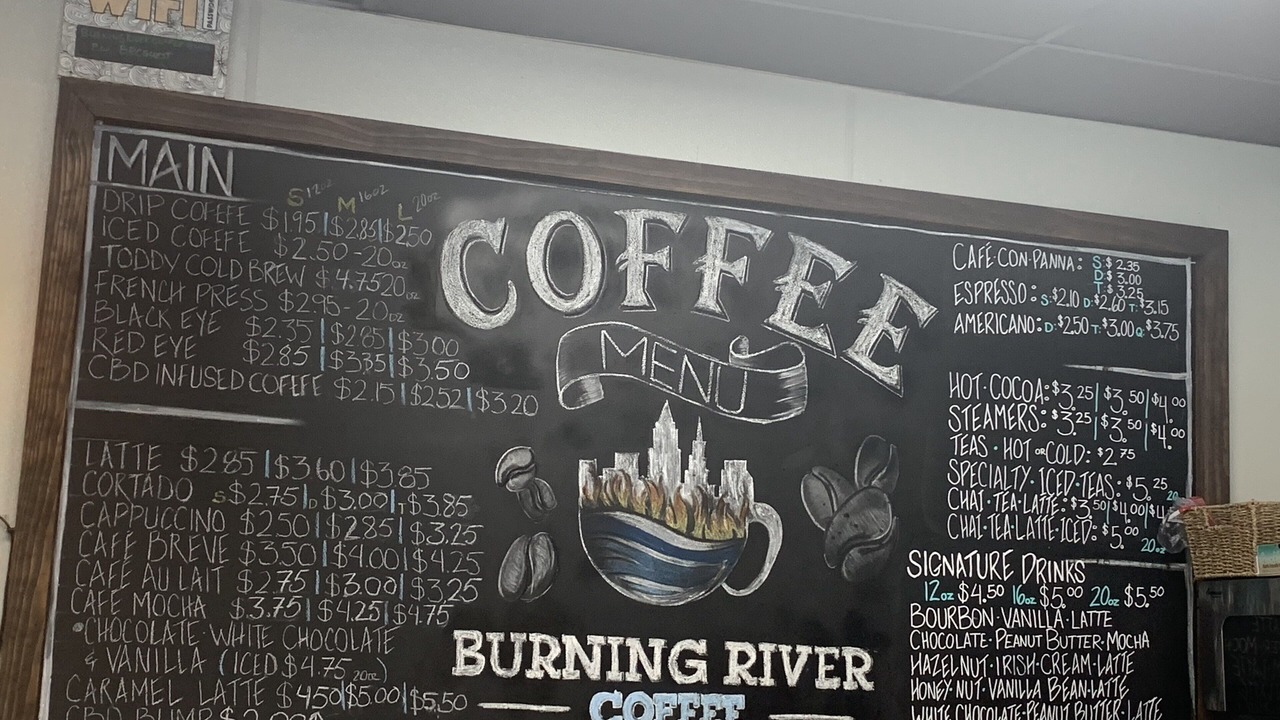 WIFI
MAIN
S 12oz M 16oz L 20oz
DRIP COFFEE $1.95|$2.85|$2.50
ICED COFFEE $2.50-20oz
TODDY COLD BREW $4.75 20oz
FRENCH PRESS $2.95-20oz
BLACK EYE $2.35|$2.85|$3.00
RED EYE $2.85|$3.35|$3.50
CBD INFUSED COFFEE $2.15|$2.52|$3.20
LATTE $2.85|$3.60|$3.85
CORTADO S $2.75|D $3.00|T $3.85
CAPPUCCINO $2.50|$2.85|$3.25
CAFE BREVE $3.50|$4.00|$4.25
CAFE AU LAIT $2.75|$3.00|$3.25
CAFE MOCHA $3.75|$4.25|$4.75
•CHOCOLATE·WHITE CHOCOLATE
& VANILLA (ICED $4.75 20oz)
CARAMEL LATTE $4.50|$5.00|$5.50
COFFEE
MENU
BURNING RIVER
COFFEE
CAFÉ·CON·PANNA: S:$2.35
D:$3.00
T:$3.25
ESPRESSO: S:$2.10 D:$2.60 T:$3.15
AMERICANO: D:$2.50 T:$3.00 Q:$3.75
HOT·COCOA: $3.25|$3.50|$4.00
STEAMERS: $3.25|$3.50|$4.00
TEAS·HOT OR COLD: $2.75
SPECIALTY·ICED·TEAS: $5.25 20
CHAI·TEA·LATTE: $3.50|$4.00|$4
CHAI·TEA·LATTE·ICED: $5.00 20oz
SIGNATURE DRINKS
12oz $4.50 16oz $5.00 20oz $5.50
BOURBON·VANILLA·LATTE
CHOCOLATE·PEANUT BUTTER·MOCHA
HAZELNUT·IRISH·CREAM·LATTE
HONEY·NUT·VANILLA BEAN·LATTE
WHITE CHOCOLATE·PEANUT BUTTER·LATTE